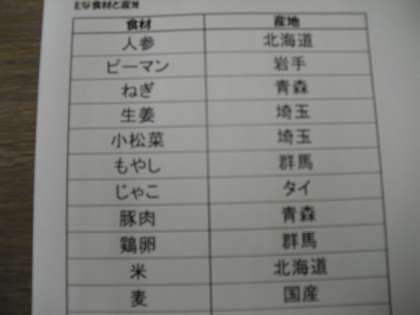 な食材と産地
食材 産地
人参 北海道
ピーマン 岩手
ねぎ 青森
生姜 埼玉
小松菜 埼玉
もやし 群馬
じゃこ タイ
豚肉 青森
鶏卵 群馬
米 北海道
麦 国産